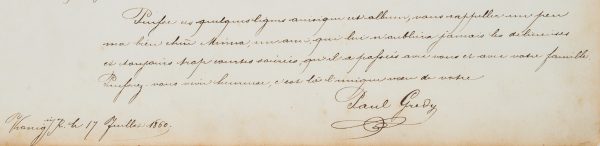 Puisse ces quelques lignes ainsi que cet album, vous rappeller un peu
ma bien chère Mima, un ami, que lui n'oubliera jamais les délicieuses
et toujours trop courtes soirées, qu'il a passées avec vous et avec votre famille.
Puissiez vous vivre heureuse, c'est là l'unique vœu de votre
Paul Gredy
le 17 Juillet 1860.